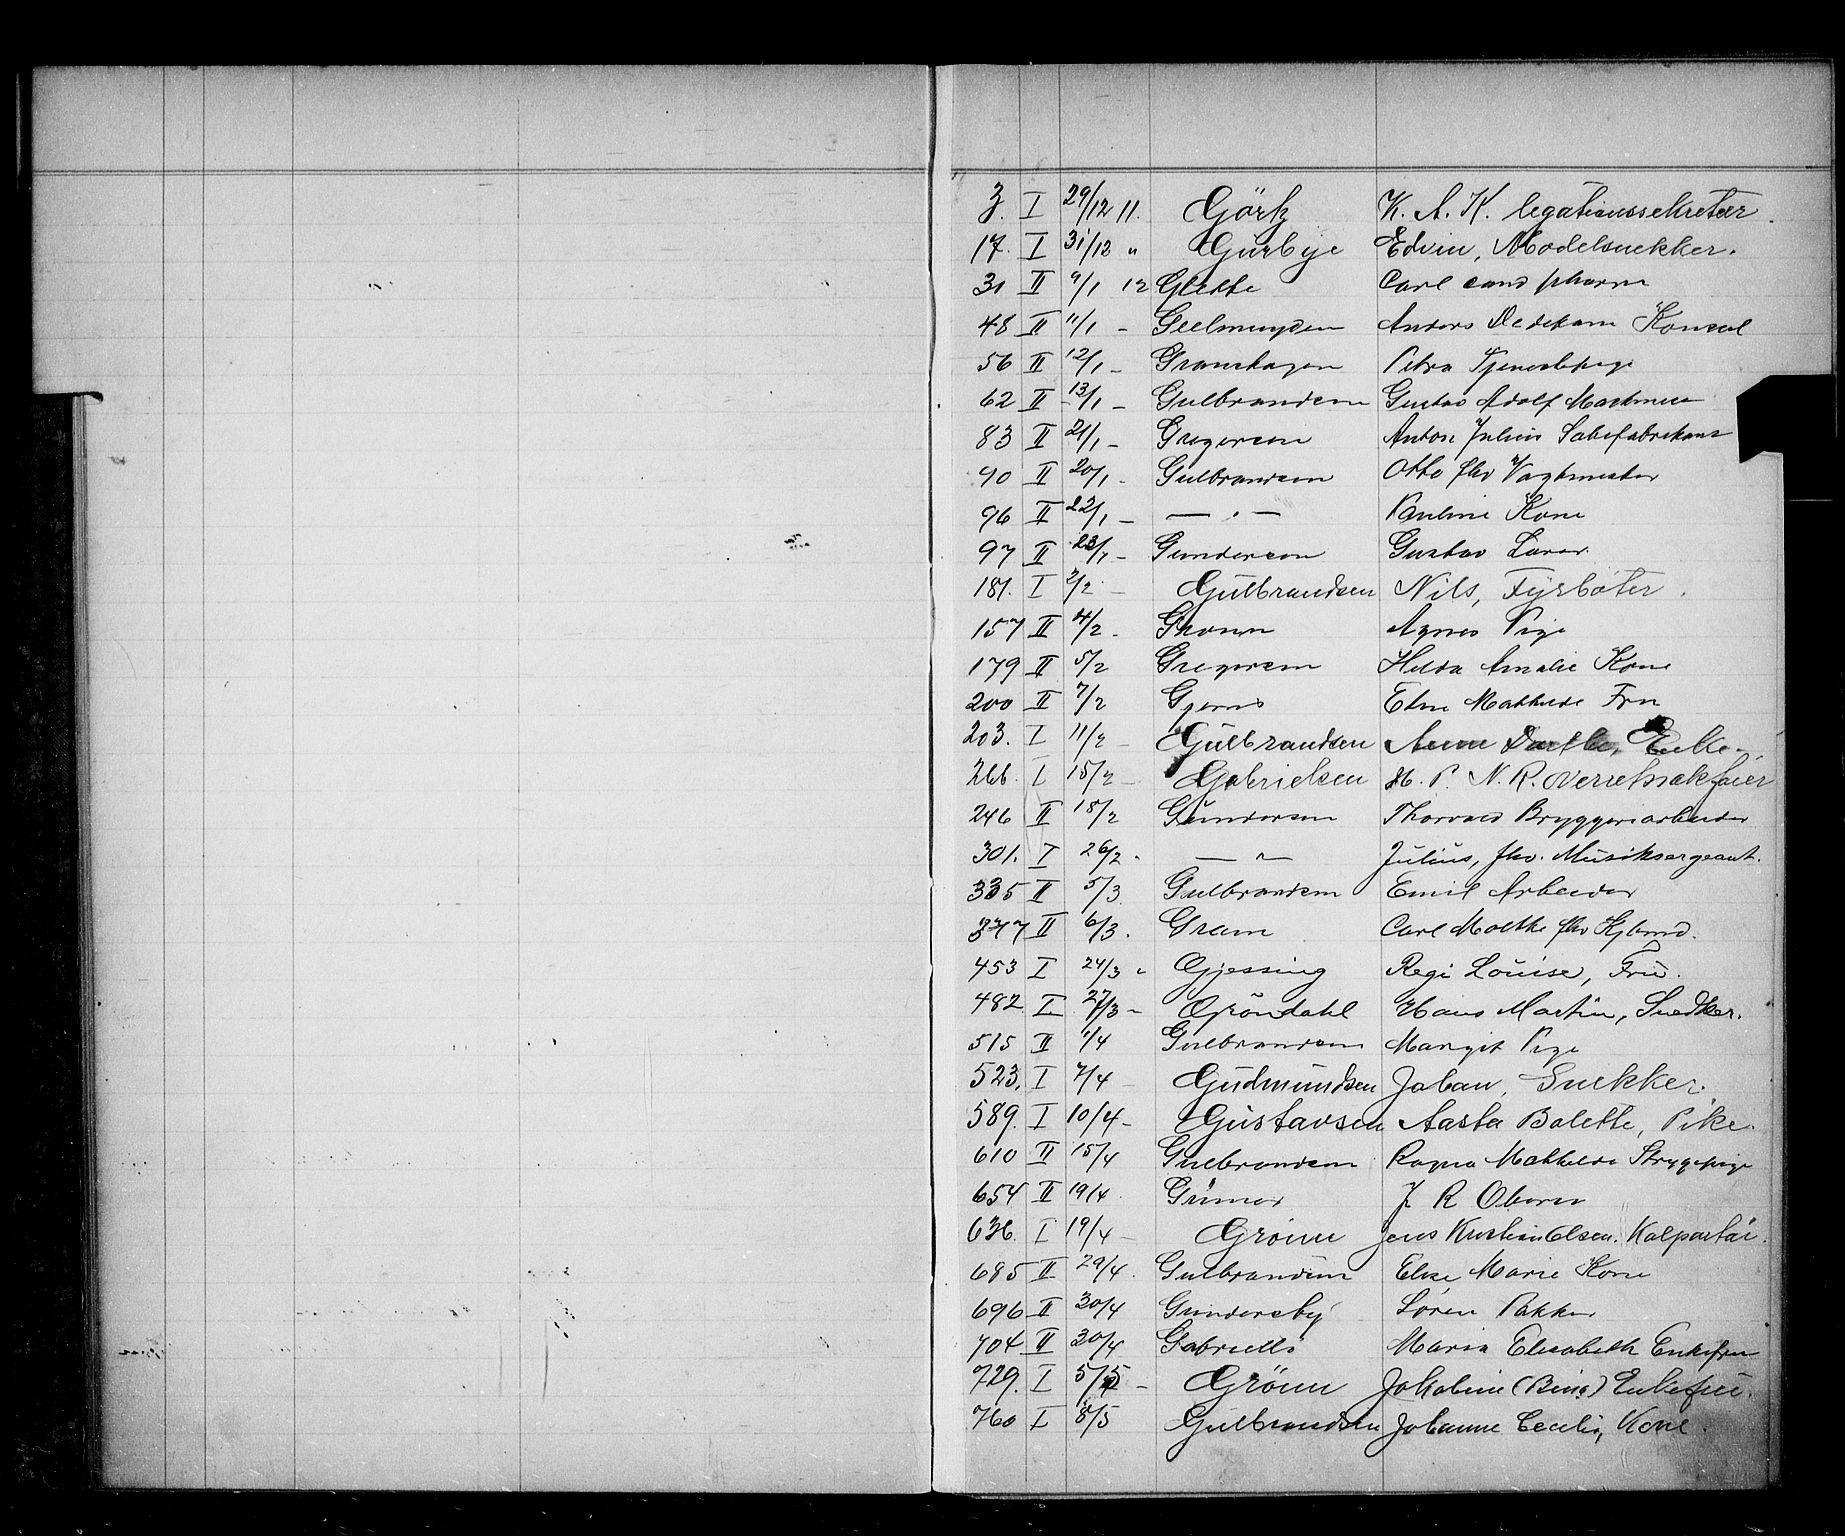 3. I 29/12 11. Görtz K. A. K. legationssekretær.
17. I 31/12 " Gürbye Edvin, Modelsnekker.
31 II 9/1 12 Glette Carl cand pharm
48 II 11/1 - Geelmuyden Anders Dedekam Konsul
56 II 12/1 - Granshagen Petra Tjenestepige
62 II 13/1 - Gulbrandsen Gustav Adolf
83 II 21/1 - Gregersen Anton Julius Sæbefabrikant
90 II 20/1 - Gulbrandsen Otto fhv Vagtmester
96 II 22/1 - — " — Pauline Kone
97 II 23/1 - Gundersen Gustav
181. I 2/2 - Gulbrandsen Nils, Fyrbøter.
157 II 4/2 - Agnes Pige
179 II 5/2 Gregersen Hilda Amalie Kone
200 II 7/2 Gjerns Mathilde Fru
203. I 11/2 - Gulbrandsen Anne Dorthe, Enke.
266. I 15/2 - Gabrielsen H. P. N. R. Overretssakfører
246 II 18/2 Gundersen Thorvald Bryggeriarbeider
301. I 26/2 - — " — Julius, fhv. Musiksergeant.
335 II 5/3 Gulbrandsen Emil Arbeider
377 II 6/3. Gram Carl Moltke fhv Kjbmd.
453 I 24/3 " Gjessing Regi Louise, Fru.
482 I 27/3 - Gröndahl Hans Martin, Snedker.
515 II 1/4 Gulbrandsen Margit Pige
523. I 7/4 - Gudmundsen Johan, Snekker.
589. I 10/4 - Gustavsen Aasta Bolette, Pike.
610 II 15/4 Gulbrandsen Ragna Mathilde Strygepige
654 II 19/4 J. R Oberst
636. I 19/4 - Grönn Jens Kristian Olsen. Kolportör.
685 II 29/4. Gulbrandsen Elise Marie Kone
696 II 30/4 Gundersby Søren Pakker
704 II 30/4 Gabrielli Maria Elisabeth Enkefru
729. I 5/5 - Grönn Jokobine (Bina) Enkefru.
760 I 8/5 Gulbrandsen Johanne Cecilie, Kone.